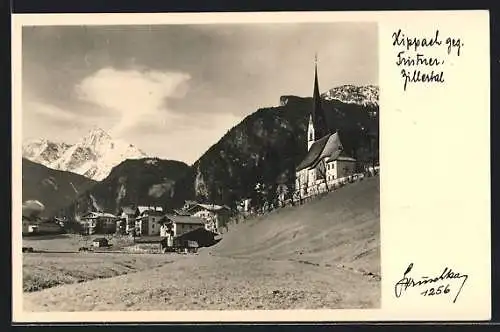 Hippach geg.
Tristner,
Zillertal
Gruselka
1256